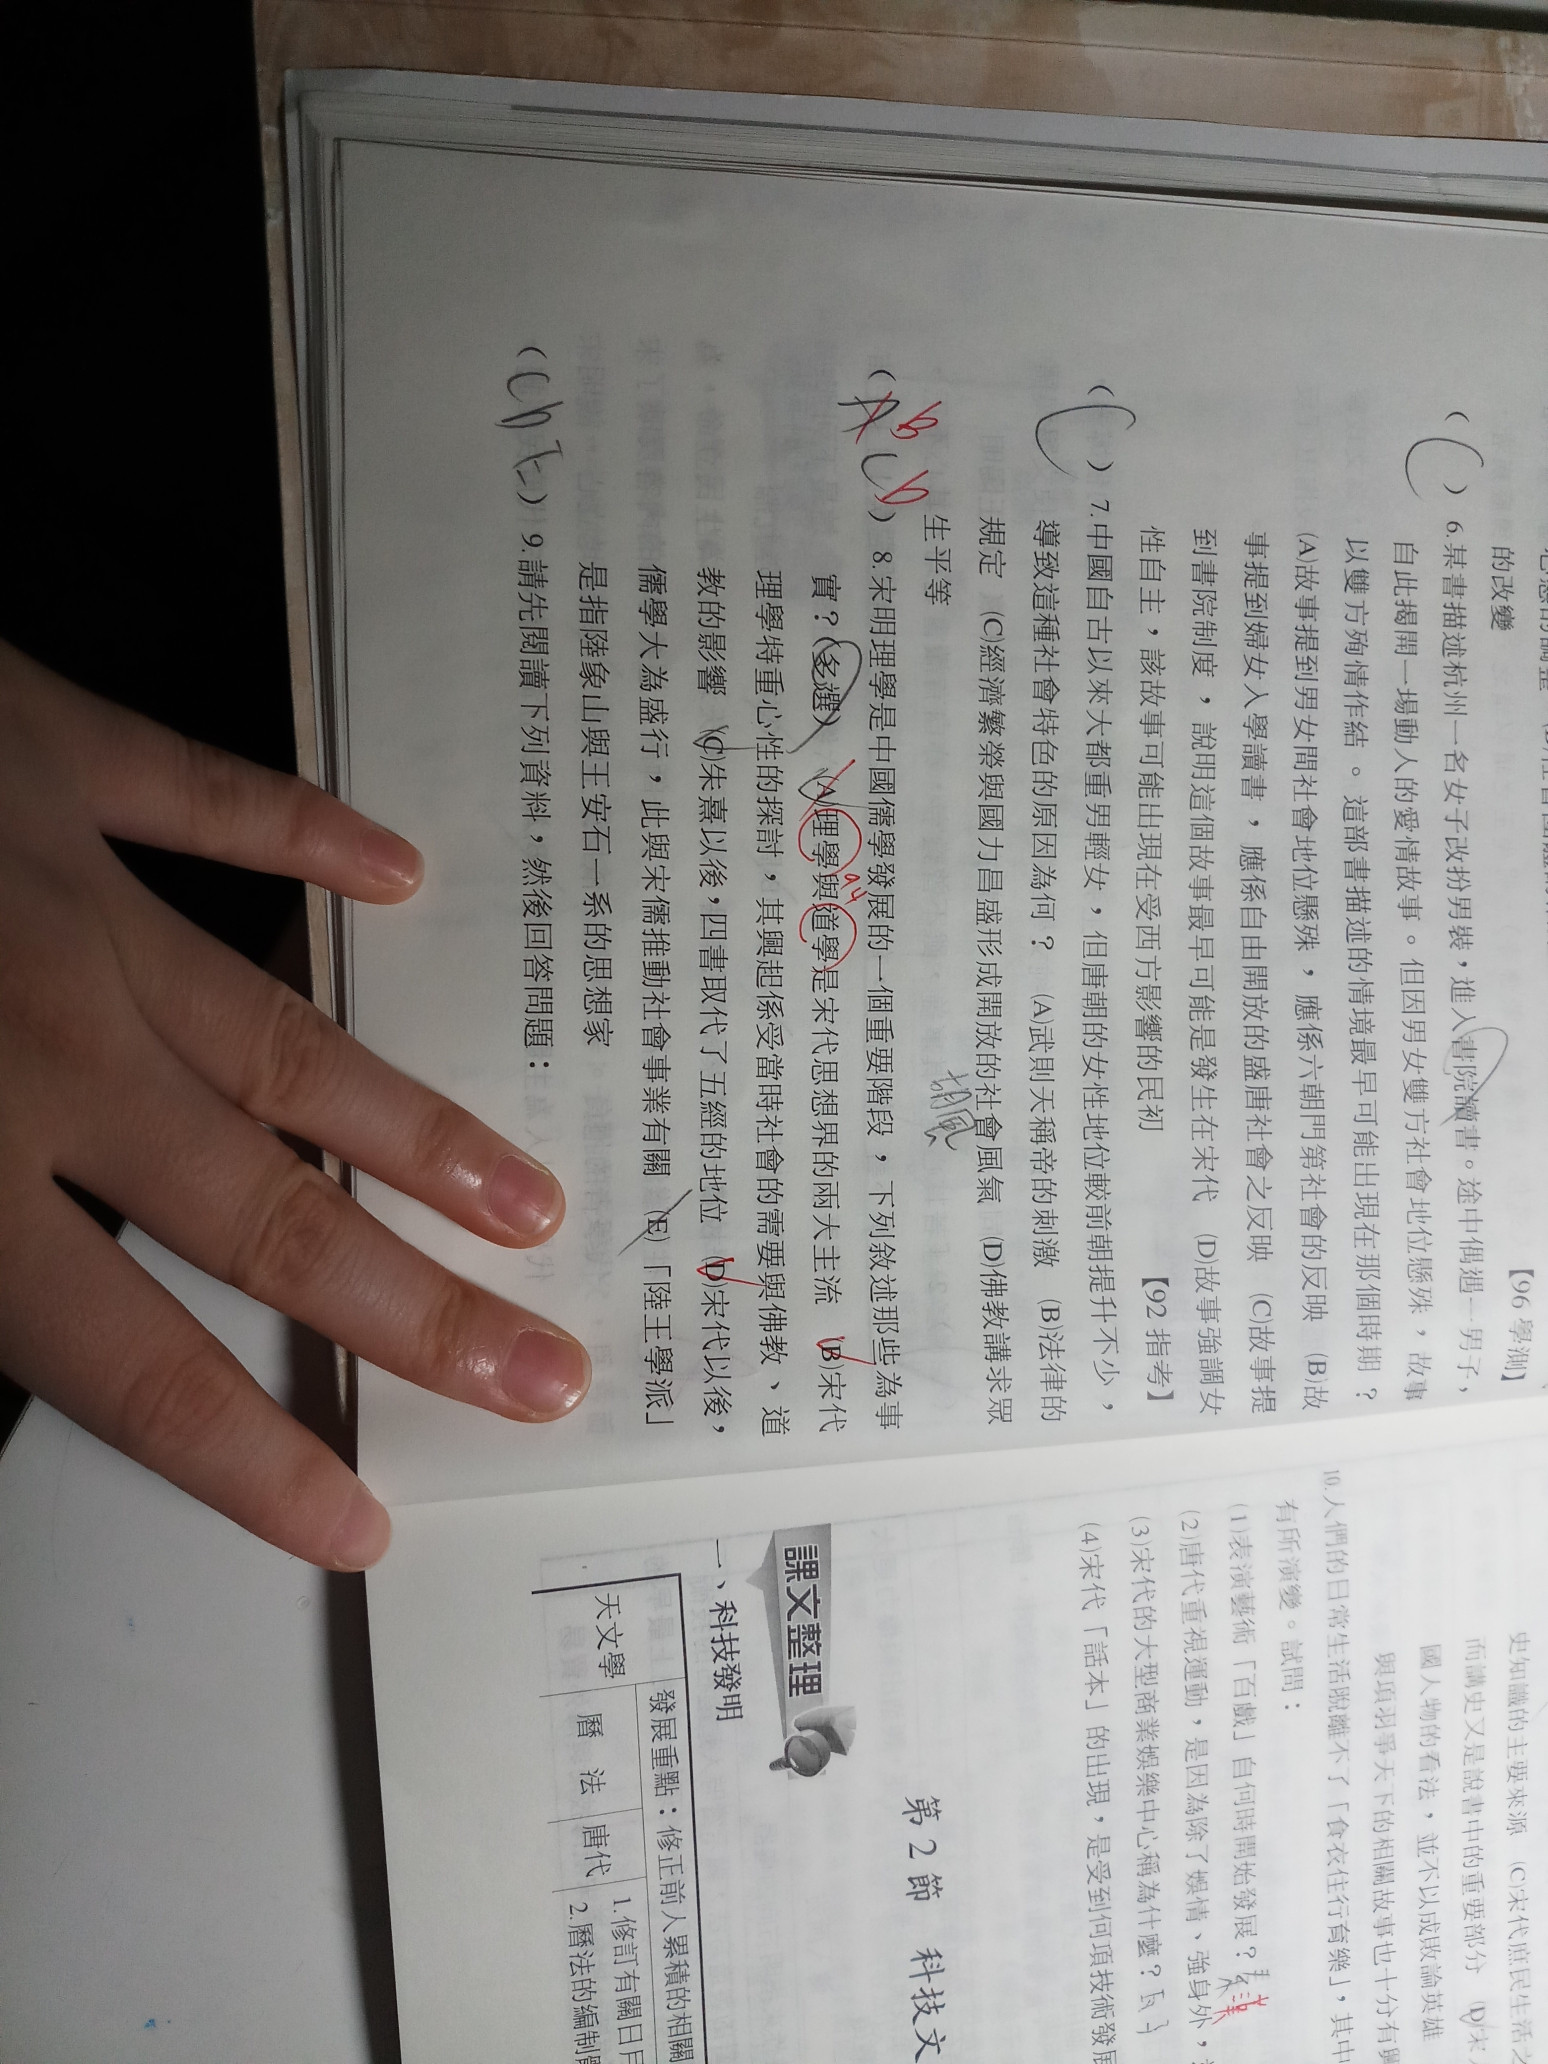 的改變
【96 學測】
( C ) 6.某書描述杭州一名女子改扮男裝，進入書院讀書。途中偶遇一男子，
自此揭開一場動人的愛情故事。但因男女雙方社會地位懸殊，故事
以雙方殉情作結。這部書描述的情境最早可能出現在那個時期？
(A)故事提到男女間社會地位懸殊，應係六朝門第社會的反映 (B)故
事提到婦女入學讀書，應係自由開放的盛唐社會之反映 (C)故事提
到書院制度，說明這個故事最早可能是發生在宋代 (D)故事強調女
性自主，該故事可能出現在受西方影響的民初
【92 指考】
( C ) 7.中國自古以來大都重男輕女，但唐朝的女性地位較前朝提升不少，
導致這種社會特色的原因為何？ (A)武則天稱帝的刺激 (B)法律的
規定 (C)經濟繁榮與國力昌盛形成開放的社會風氣 (D)佛教講求眾
胡風
生平等
B D
( A C ) 8.宋明理學是中國儒學發展的一個重要階段，下列敘述那些為事
實？(多選) (A)理學與道學是宋代思想界的兩大主流 (B)宋代
理學特重心性的探討，其興起係受當時社會的需要與佛教、道
教的影響 (C)朱熹以後，四書取代了五經的地位 (D)宋代以後，
儒學大為盛行，此與宋儒推動社會事業有關 (E)「陸王學派」
是指陸象山與王安石一系的思想家
( C D E ) 9.請先閱讀下列資料，然後回答問題：
史知識的主要來源 (C)宋代庶民生活
而講史又是說書中的重要部分 (D)宋
國人物的看法，並不以成敗論英雄
與項羽爭天下的相關故事也十分有
10.人們的日常生活脫離不了「食衣住行育樂」，其中
有所演變。試問：
(1)表演藝術「百戲」自何時開始發展？ 漢
(2)唐代重視運動，是因為除了娛情、強身外，
(3)宋代的大型商業娛樂中心稱為什麼？
(4)宋代「話本」的出現，是受到何項技術發展
第 2 節 科技文
課文整理
一、科技發明
發展重點：修正前人累積的相關
天文學 曆 法 唐代 1.修訂有關日月
2.曆法的編制